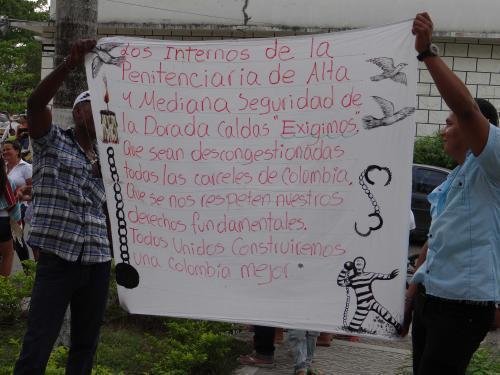 Los Internos de la
Penitenciaria de Alta
y Mediana Seguridad de
la Dorada Caldas "Exigimos",
Que sean descongestionadas
todas las carceles de Colombia,
Que se nos respeten nuestros
derechos fundamentales.
Todos Unidos Construiremos
una Colombia mejor